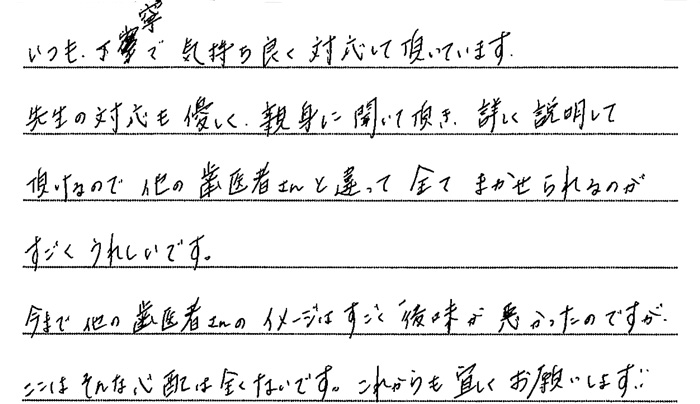 いつも、丁寧で気持ち良く対応して頂いています。
先生の対応も優しく、親身に聞いて頂き、詳しく説明して
頂けるので他の歯医者さんと違って全てまかせられるのが
すごくうれしいです。
今まで他の歯医者さんのイメージはすごく後味が悪かったのですが、
ここはそんな心配は全くないです。これからも宜しくお願いします‥